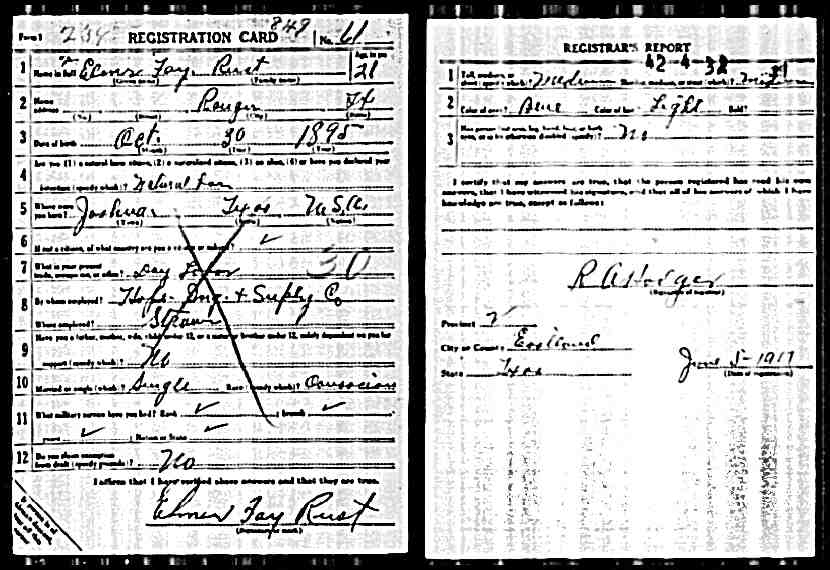 Form 1 REGISTRATION CARD 849 No. 61
1 Name in full Elmer Fay Rust Age, in yrs 21
(Given name) (Family name)
2 Home address Ranger Tx
(No.) (Street) (City) (State)
3 Date of birth Oct 30 1895
(Month) (Day) (Year)
Are you (1) a natural born citizen, (2) a naturalized citizen, (3) an alien, (4) or have you declared your
4 intention (specify which)? Natural Born
5 Where were you born? Joshua Texas U.S.A.
(Town) (State) (Nation)
6 If not a citizen, of what country are you a citizen or subject? ✓
7 What is your present trade, occupation, or office? Day Labor 30
8 By whom employed? Drg. + Suply Co
Where employed? Strawn
Have you a father, mother, wife, child under 12, or a sister or brother under 12, solely dependent on you for
9 support (specify which)? No
10 Married or single (which)? Single Race (specify which)? Caucasian
11 What military service have you had? Rank ✓ ; branch ✓
years ✓ ; Nation or State ✓
12 Do you claim exemption from draft (specify grounds)? No
I affirm that I have verified above answers and that they are true.
Elmer Fay Rust
(Signature or mark)
REGISTRAR'S REPORT
42-4-32
1 Tall, medium, or short (specify which)? Medium Slender, medium, or stout (which)?
2 Color of eyes? Blue Color of hair? Light Bald?
3 Has person lost arm, leg, hand, foot, or both eyes, or is he otherwise disabled (specify)? No
I certify that my answers are true, that the person registered has read his own
answers, that I have witnessed his signature, and that all of his answers of which I have
knowledge are true, except as follows:
(Signature of registrar)
Precinct
City or County Eastland
State Texas June 5-1917
(Date of registration)